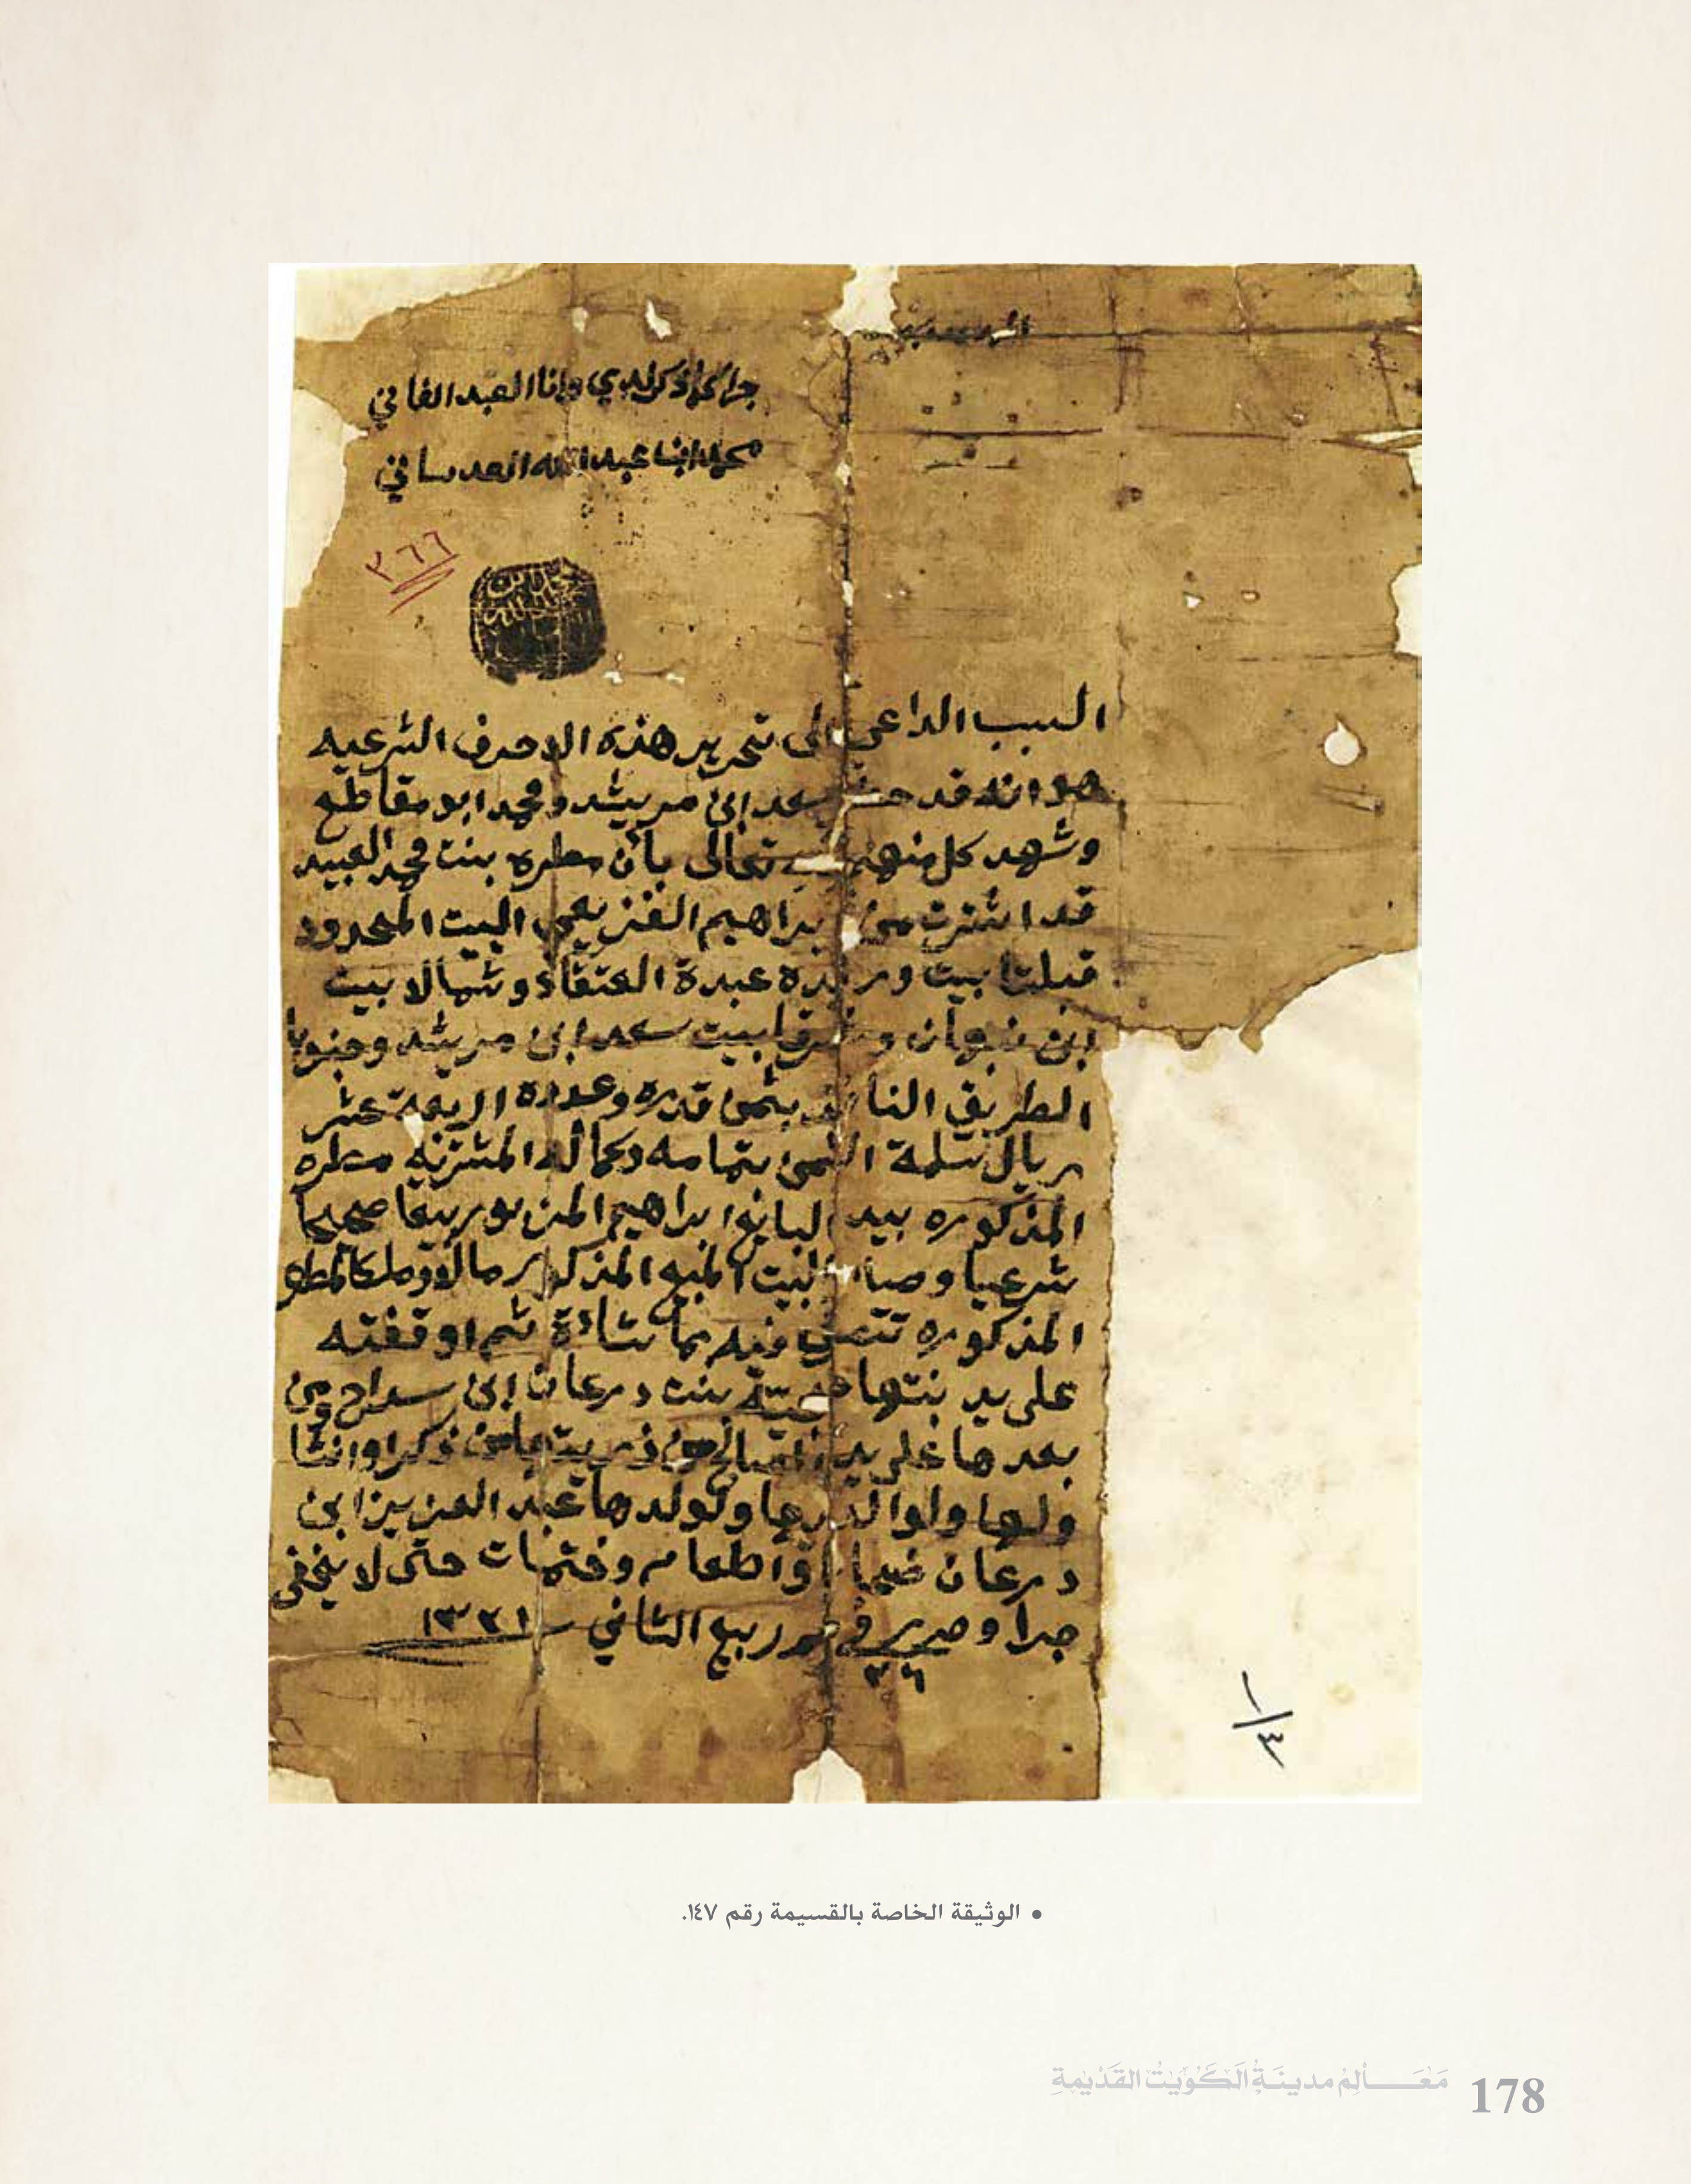 جرا كما ذكر لدي وانا العبد الفاني
محمد ابن عبد الله العدساني
٣٦٦
السبب الداعي الى تحرير هذه الاحرف الشرعيه
هو انه قد سعد ابن مريشد ومحمد ابو مقاطع
وشهد كل منهم تعالى بأن مطره بنت محمد العبيد
قد اشترت من ابراهيم الفنزيعي البيت المحدود
قبلتا بيت عبدة العتقاد وشمالا بيت
ابن نبهان وشرقا بيت سعد ابن مريشد وجنوبا
الطريق النافذ بثمن قدره وعدده اربعة عشر
ريال سلمة الثمن بتمامه وكماله المشتريه مطره
المذكوره بيد البايع ابراهيم المزبور بيعا صحيحا
شرعيا وصار البيت المبيع المذكور مالا وملكا لمطره
المذكوره تتصرف فيه بما تشاء ثم اوقفته
على يد بنتها بنت درعان ابن سداح ومن
بعدها على يد الصالح من ذريت ذكرا وانثا
ولها ولوالديها ولولدها عبد العزيز ابن
درعان ضحايا واطعام وختمات حتى لا يخفى
جرا وحرر في ربيع الثاني ١٣٢١
٢٦
١/٤
• الوثيقة الخاصة بالقسيمة رقم ١٤٧.
مَعَـالِمُ مدينَةِ الكُوَيْتِ القَدْيمَةِ 178